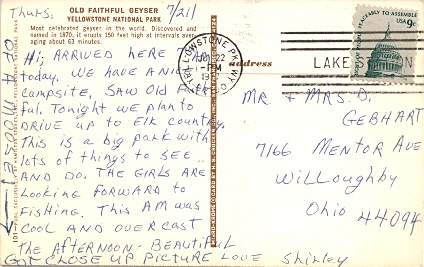 Thurs. 7/21
OLD FAITHFUL GEYSER
YELLOWSTONE NATIONAL PARK
Most celebrated geyser in the world. Discovered and
named in 1870, it erupts 150 feet high at intervals aver-
aging about 63 minutes.
Hi, ARRIVED HERE
today. WE HAVE A NICE
CAMPSITE, SAW OLD FAITH
ful. Tonight we plan to
DRIVE UP TO ELK COUNTRY.
This is a big park with
lots of things to SEE
AND DO. THE GIRLS ARE
Looking forward to
Fishing. This AM was
COOL AND OVERCAST
The Afternoon - Beautiful
GOT CLOSE UP PICTURE LOVE Shirley
OF A MOOSE!
YELLOWSTONE PK. WYO
JUL 22
PM
address
TO ASSEMBLE
USA 9c
LAKE
MR + MRS. D.
GEBHART
7166 MENTOR AVE
Willoughby
Ohio 44094